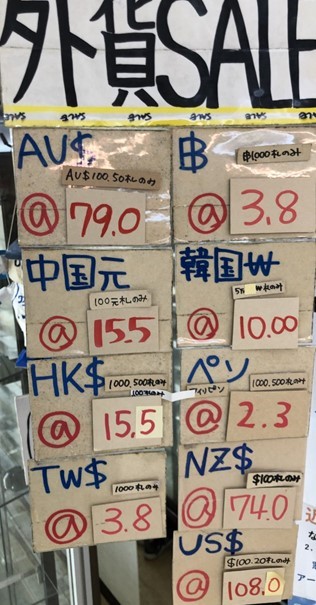 外貨SALE
SALE SALE SALE SALE
AU$
AU$100.50札のみ
@ 79.0
฿
฿1000札のみ
@ 3.8
中国元
100元札のみ
@ 15.5
韓国₩
₩札のみ
@ 10.00
HK$
1000,500札のみ
100札のみ
@ 15.5
ペソ
フィリピン
1000,500札のみ
@ 2.3
TW$
1000札のみ
@ 3.8
NZ$
$100札のみ
@ 74.0
US$
$100.20札のみ
@ 108.0